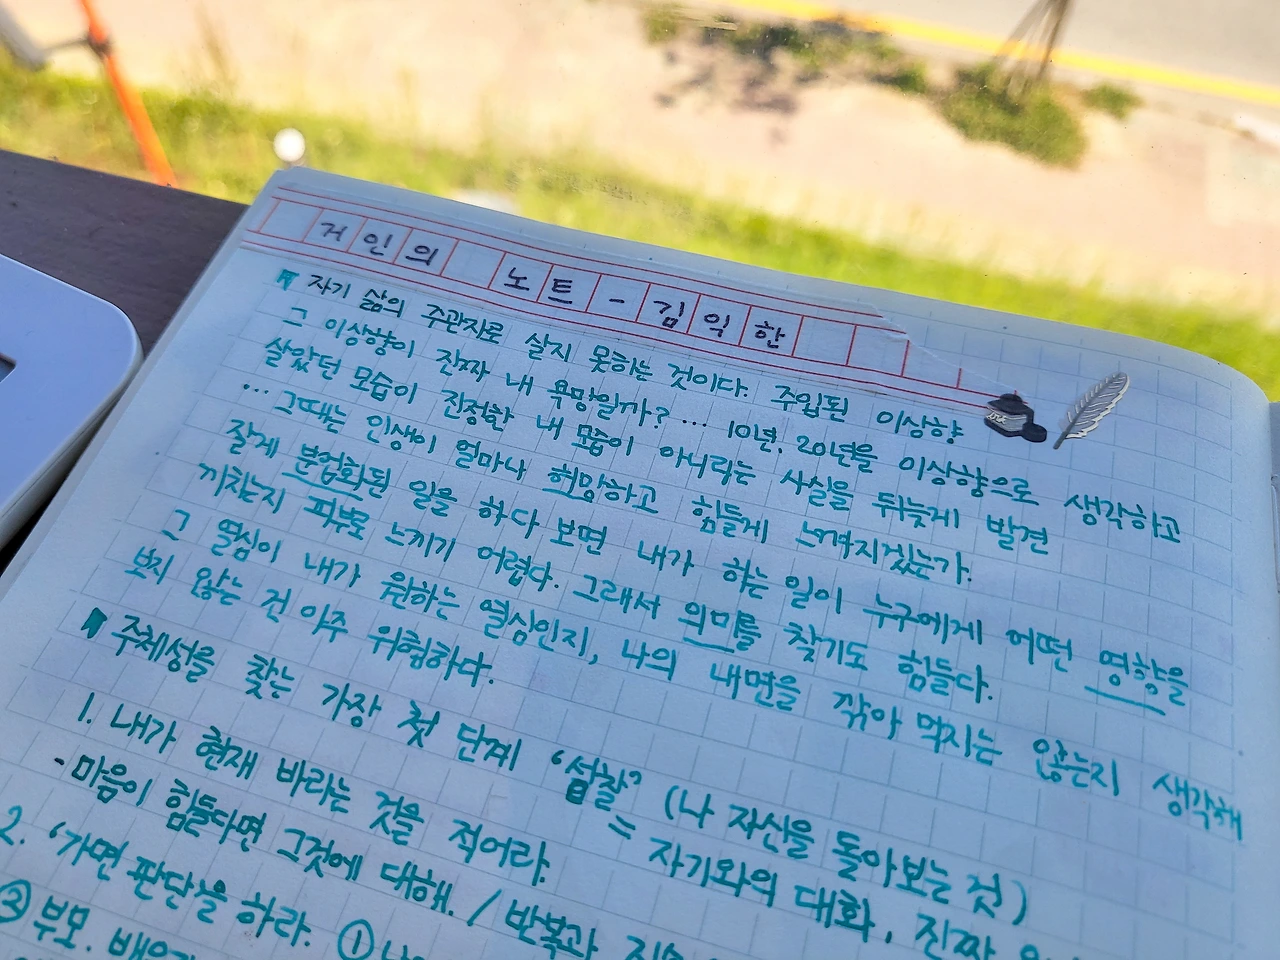 거인의 노트 - 김익한
자기 삶의 주관자로 살지 못하는 것이다. 주입된 이상향
그 이상향이 진짜 내 욕망일까? … 10년, 20년을 이상향으로 생각하고
살았던 모습이 진정한 내 모습이 아니라는 사실을 뒤늦게 발견
… 그때는 인생이 얼마나 허망하고 힘들게 느껴지겠는가.
잘게 분업화된 일을 하다 보면 내가 하는 일이 누구에게 어떤 영향을
끼치는지 피부로 느끼기 어렵다. 그래서 의미를 찾기도 힘들다.
그 열심이 내가 원하는 열심인지, 나의 내면을 깎아 먹지는 않는지 생각해
보지 않는 건 아주 위험하다.
주체성을 찾는 가장 첫 단계 '성찰' (나 자신을 돌아보는 것)
= 자기와의 대화, 진짜
1. 내가 현재 바라는 것을 적어라.
- 마음이 힘들다면 그것에 대해. / 반복과
2. '가면 판단'을 하라. ①
② 부모.